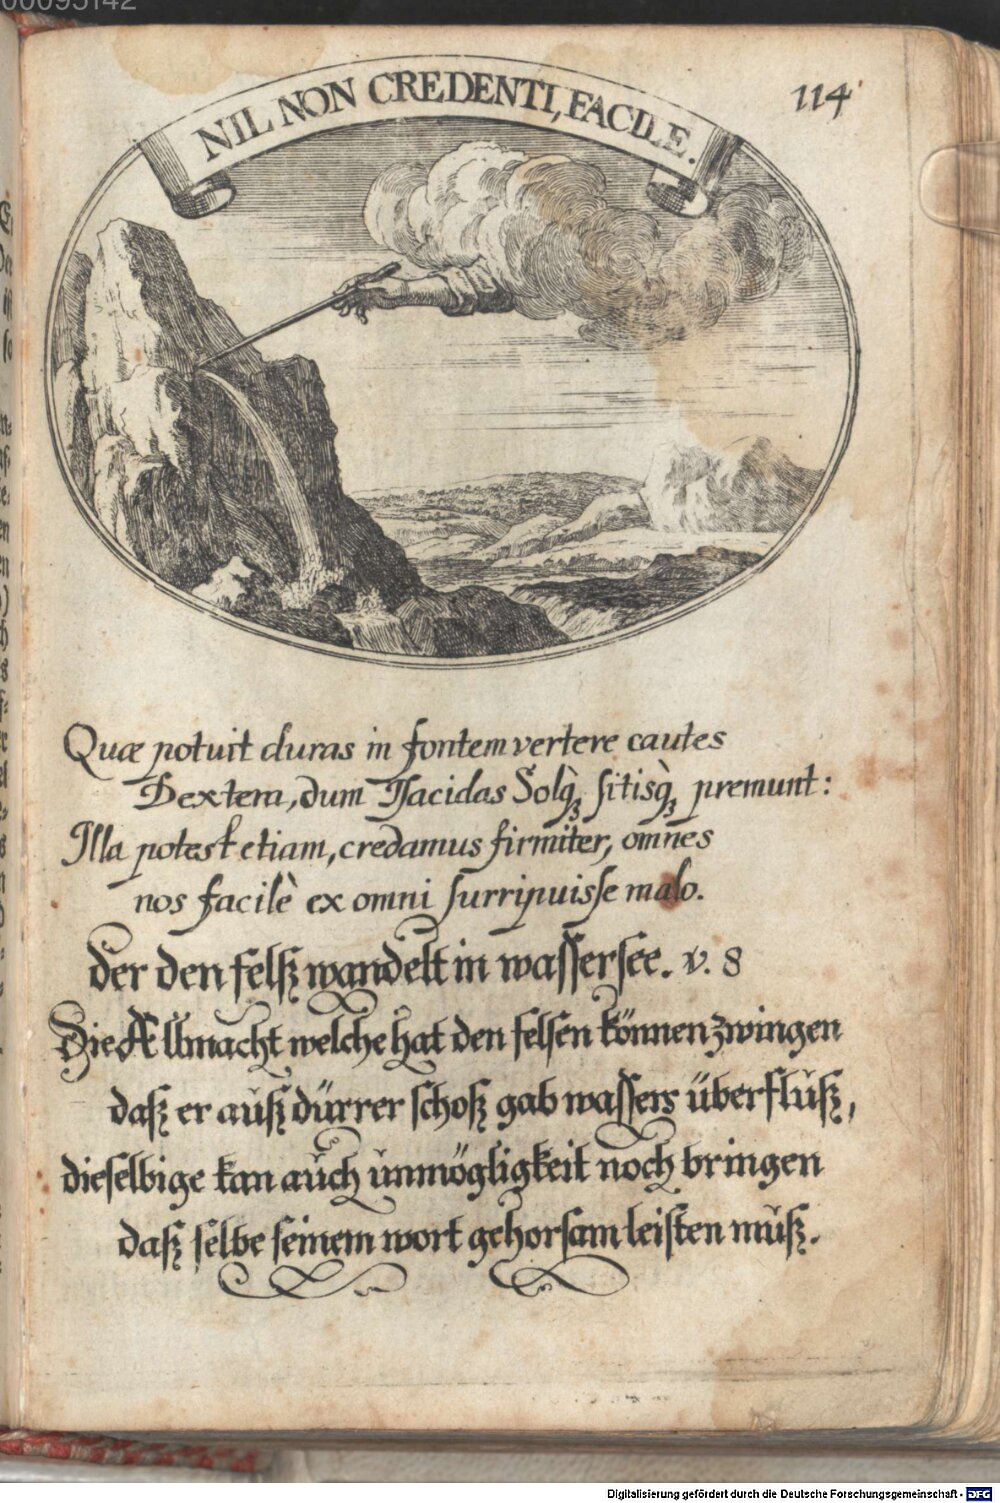 00095142
NIL NON CREDENTI, FACILE.
114
Quæ potuit duras in fontem vertere cautes
Dextera, dum Isacidas Solq̀ꝫ sitisq̀ꝫ premunt:
Illa potest etiam, credamus firmiter, omnes
nos facilè ex omni surripuisse malo.
der den felsz wandelt in wassersee. v. 8
Die Allmacht welche hat den felsen können zwingen
dasz er ausz dürrer schosz gab wassers überflusz,
dieselbige kan auch unmögligkeit noch bringen
dasz selbe seinem wort gehorsam leisten musz.
Digitalisierung gefördert durch die Deutsche Forschungsgemeinschaft - DFG